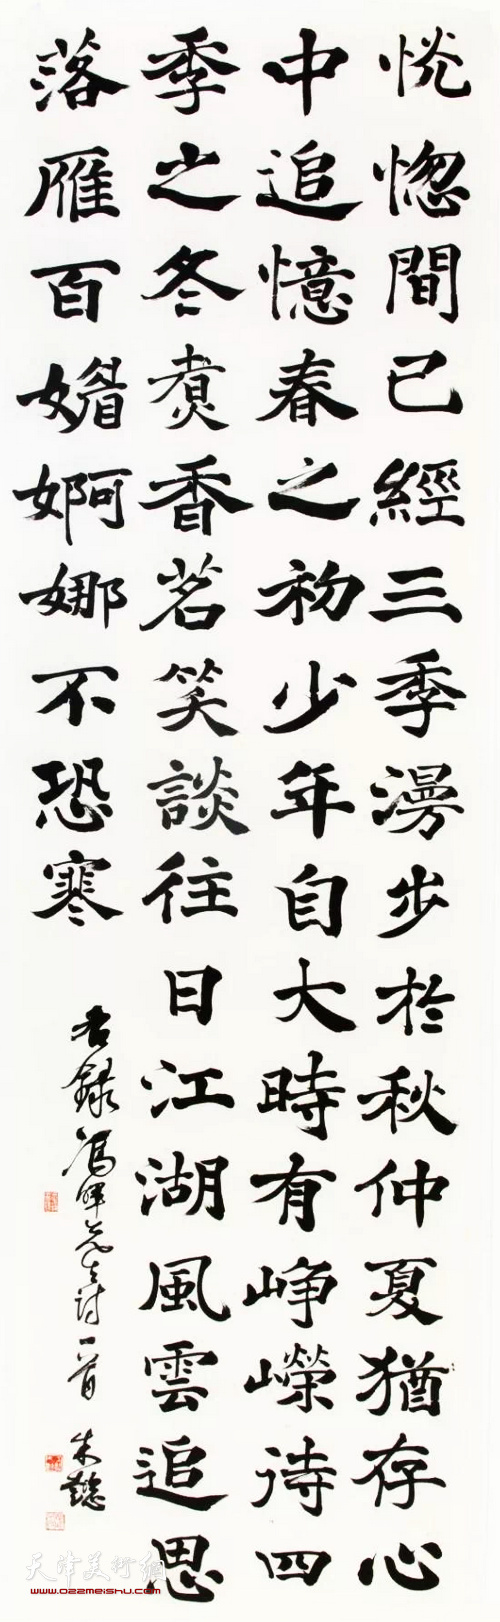 恍惚間已經三季漫步於秋仲夏猶存心
中追憶春之初少年自大時有崢嶸待四
季之冬煮香茗笑談往日江湖風雲追思
落雁百媚婀娜不恐寒
右録馮暉先生詩一首 朱懿
天津美术網
www.022meishu.com